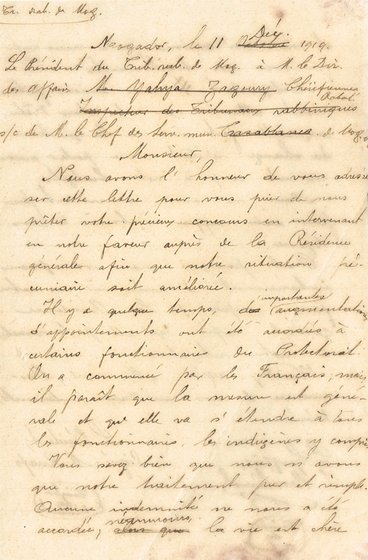 Tr. rab. de Mog.
Mogador, le 11 Octobre Déc. 1919.
Le Président du Trib. rab. de Mog. à M. le Dir.
des Affair. Mr Yahya Zagoury Chérifiennes
Inspecteur des Tribunaux rabbiniques Rabat
s/c de M. le Chef des Serv. mun. Casablanca de Mog.
Monsieur,
Nous avons l'honneur de vous adres-
ser cette lettre pour vous prier de nous
prêter votre précieux concours en intervenant
en notre faveur auprès de la Résidence
générale afin que notre situation pé-
cuniaire soit améliorée.
Il y a quelque temps, des importantes augmentations
d'appointements ont été accordées à
certains fonctionnaires du Protectorat.
On a commencé par les Français, mais
il paraît que la mesure est géné-
rale et qu'elle va s'étendre à tous
les fonctionnaires les indigènes y compris
Vous savez bien que nous n'avons
que notre traitement pur et simple.
Aucune indemnité ne nous a été
accordée, néanmoins, alors que la vie est chère